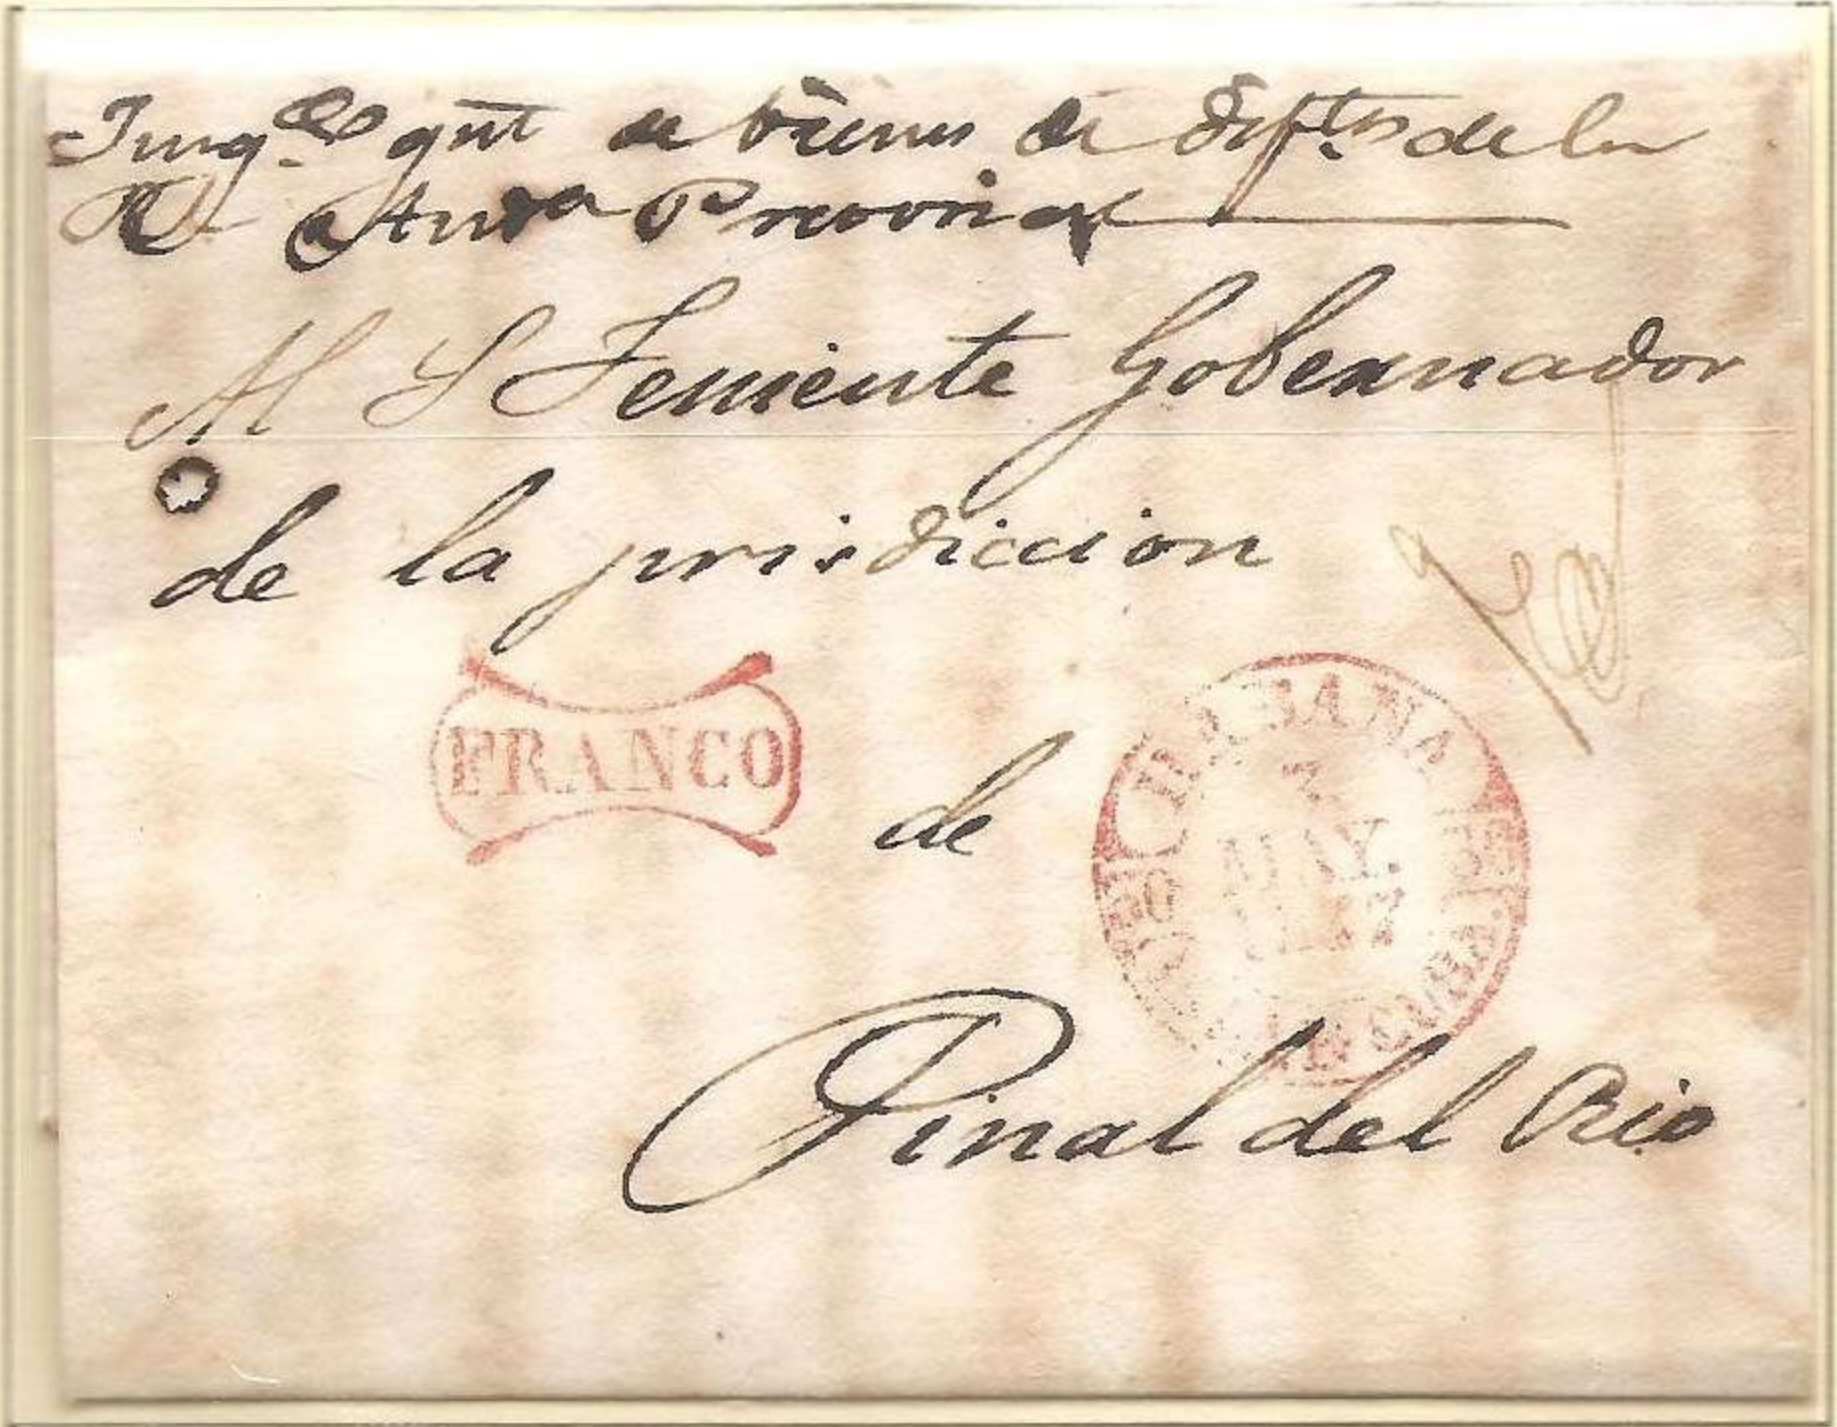 Juzg.do gral de bienes de Dif.tos de la
Rl Auda
Al S Teniente Gobernador
de la jurisdiccion
FRANCO
de
HABANA
3
MAY.
CUBA
Pinal del Rio